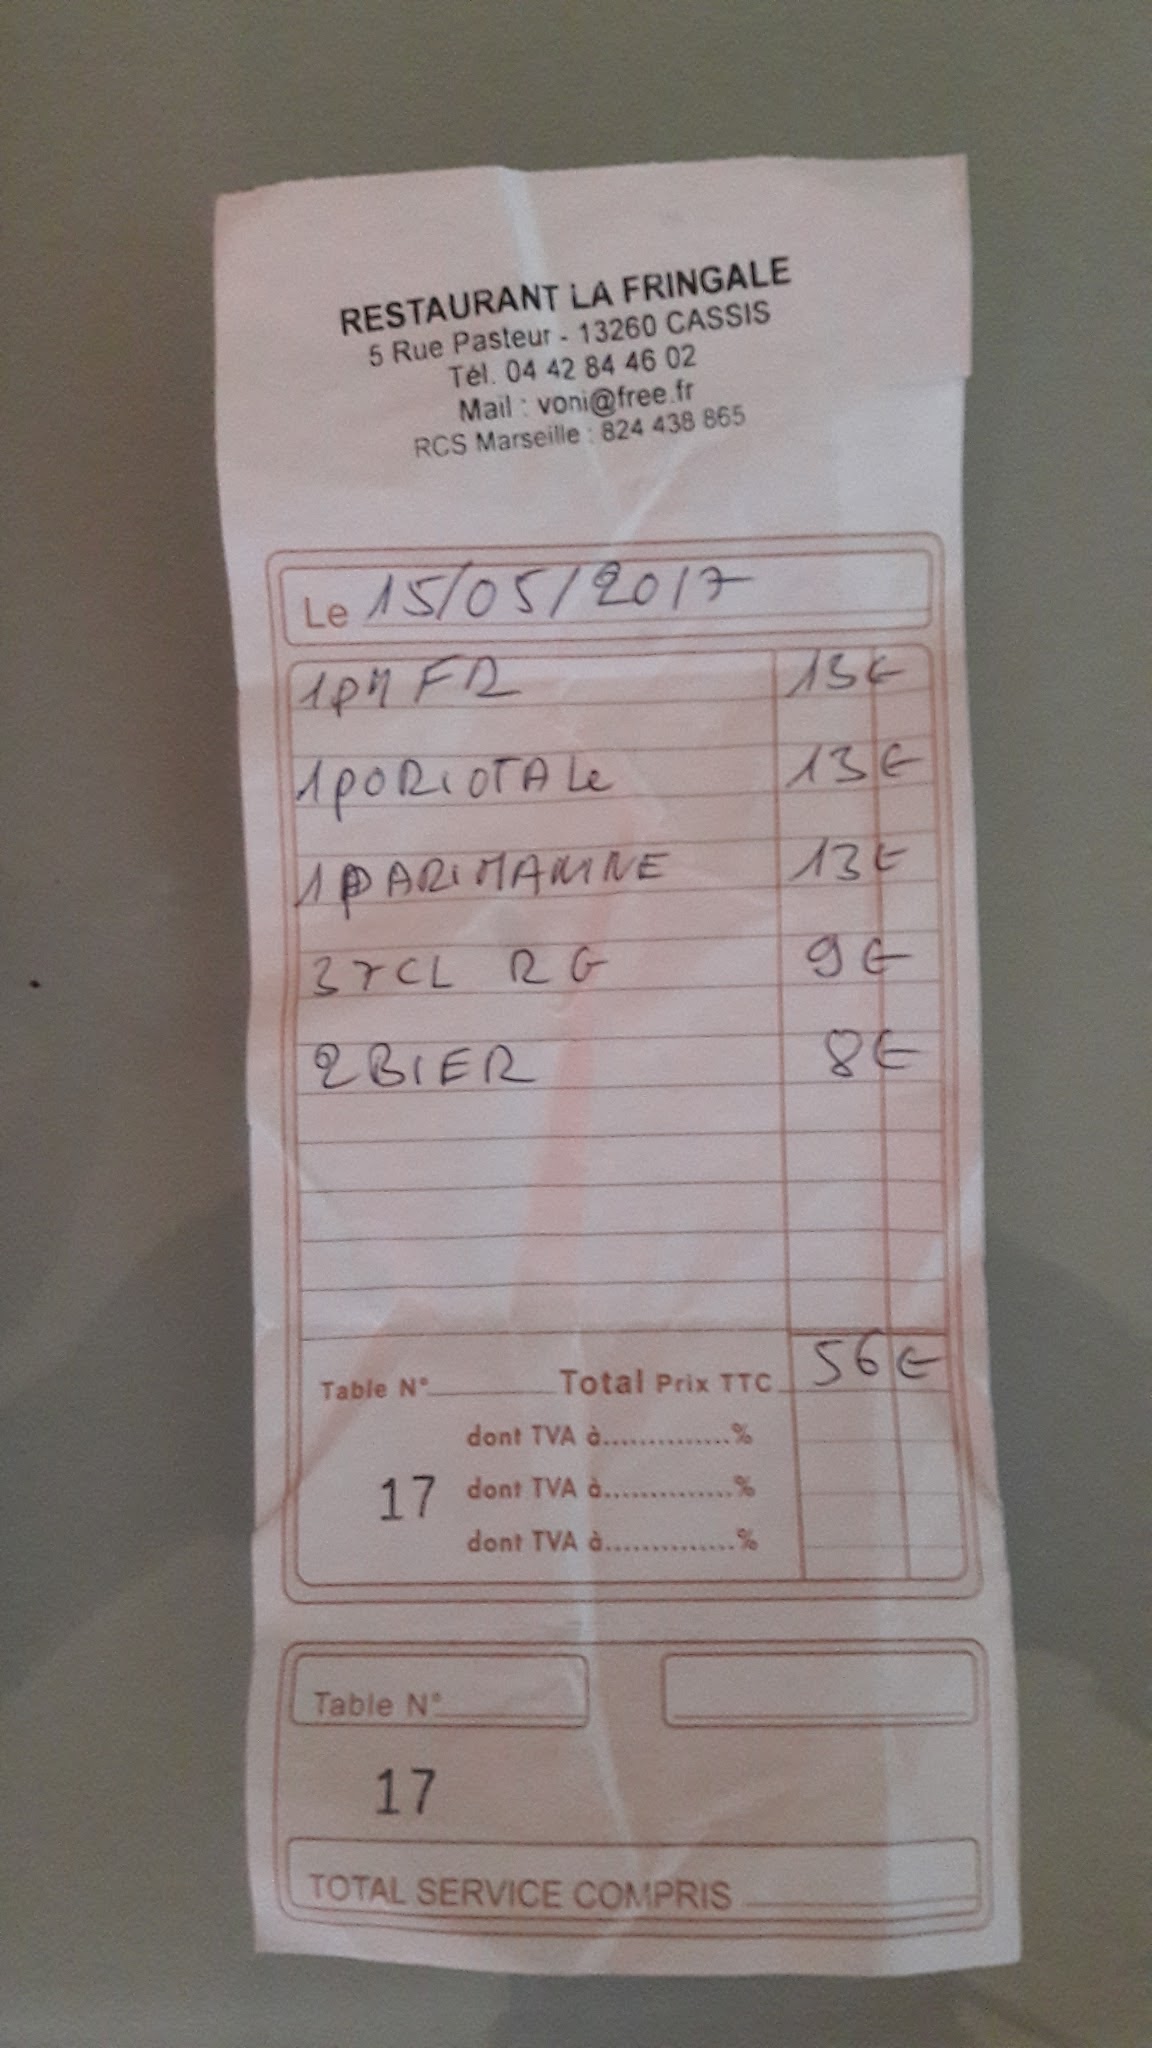 RESTAURANT LA FRINGALE
5 Rue Pasteur - 13260 CASSIS
Tél. 04 42 84 46 02
Mail : voni@free.fr
RCS Marseille : 824 438 865
Le 15/05/2017
1 PM FR 13€
1 PORIOTALE 13€
1 PARIMANINE 13€
3 7CL RG 9€
2 BIER 8€
Table N° Total Prix TTC 56€
dont TVA à..............%
17 dont TVA à..............%
dont TVA à..............%
Table N°
17
TOTAL SERVICE COMPRIS